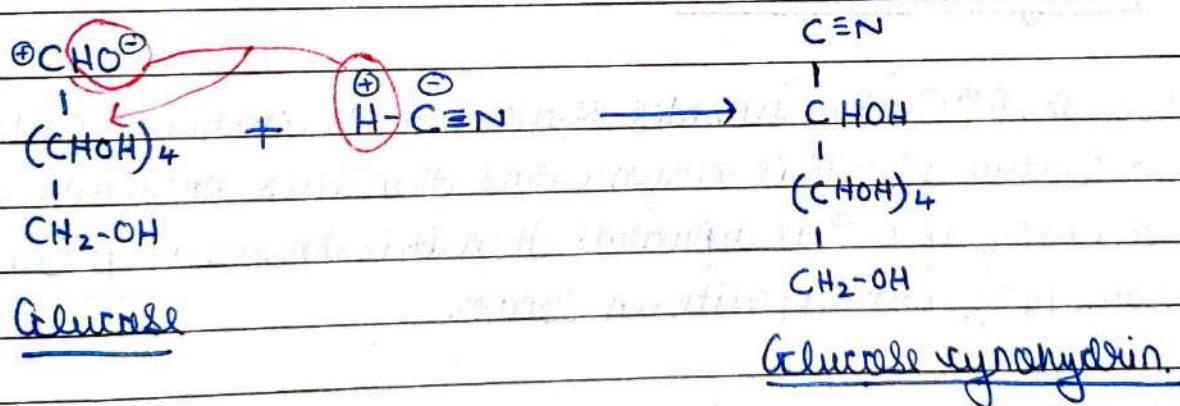 ⊕CHO⊖
|
(CHOH)4
|
CH2-OH
Glucose
+
⊕ ⊖
H-C≡N
⟶
C≡N
|
CHOH
|
(CHOH)4
|
CH2-OH
Glucose cynohydrin.